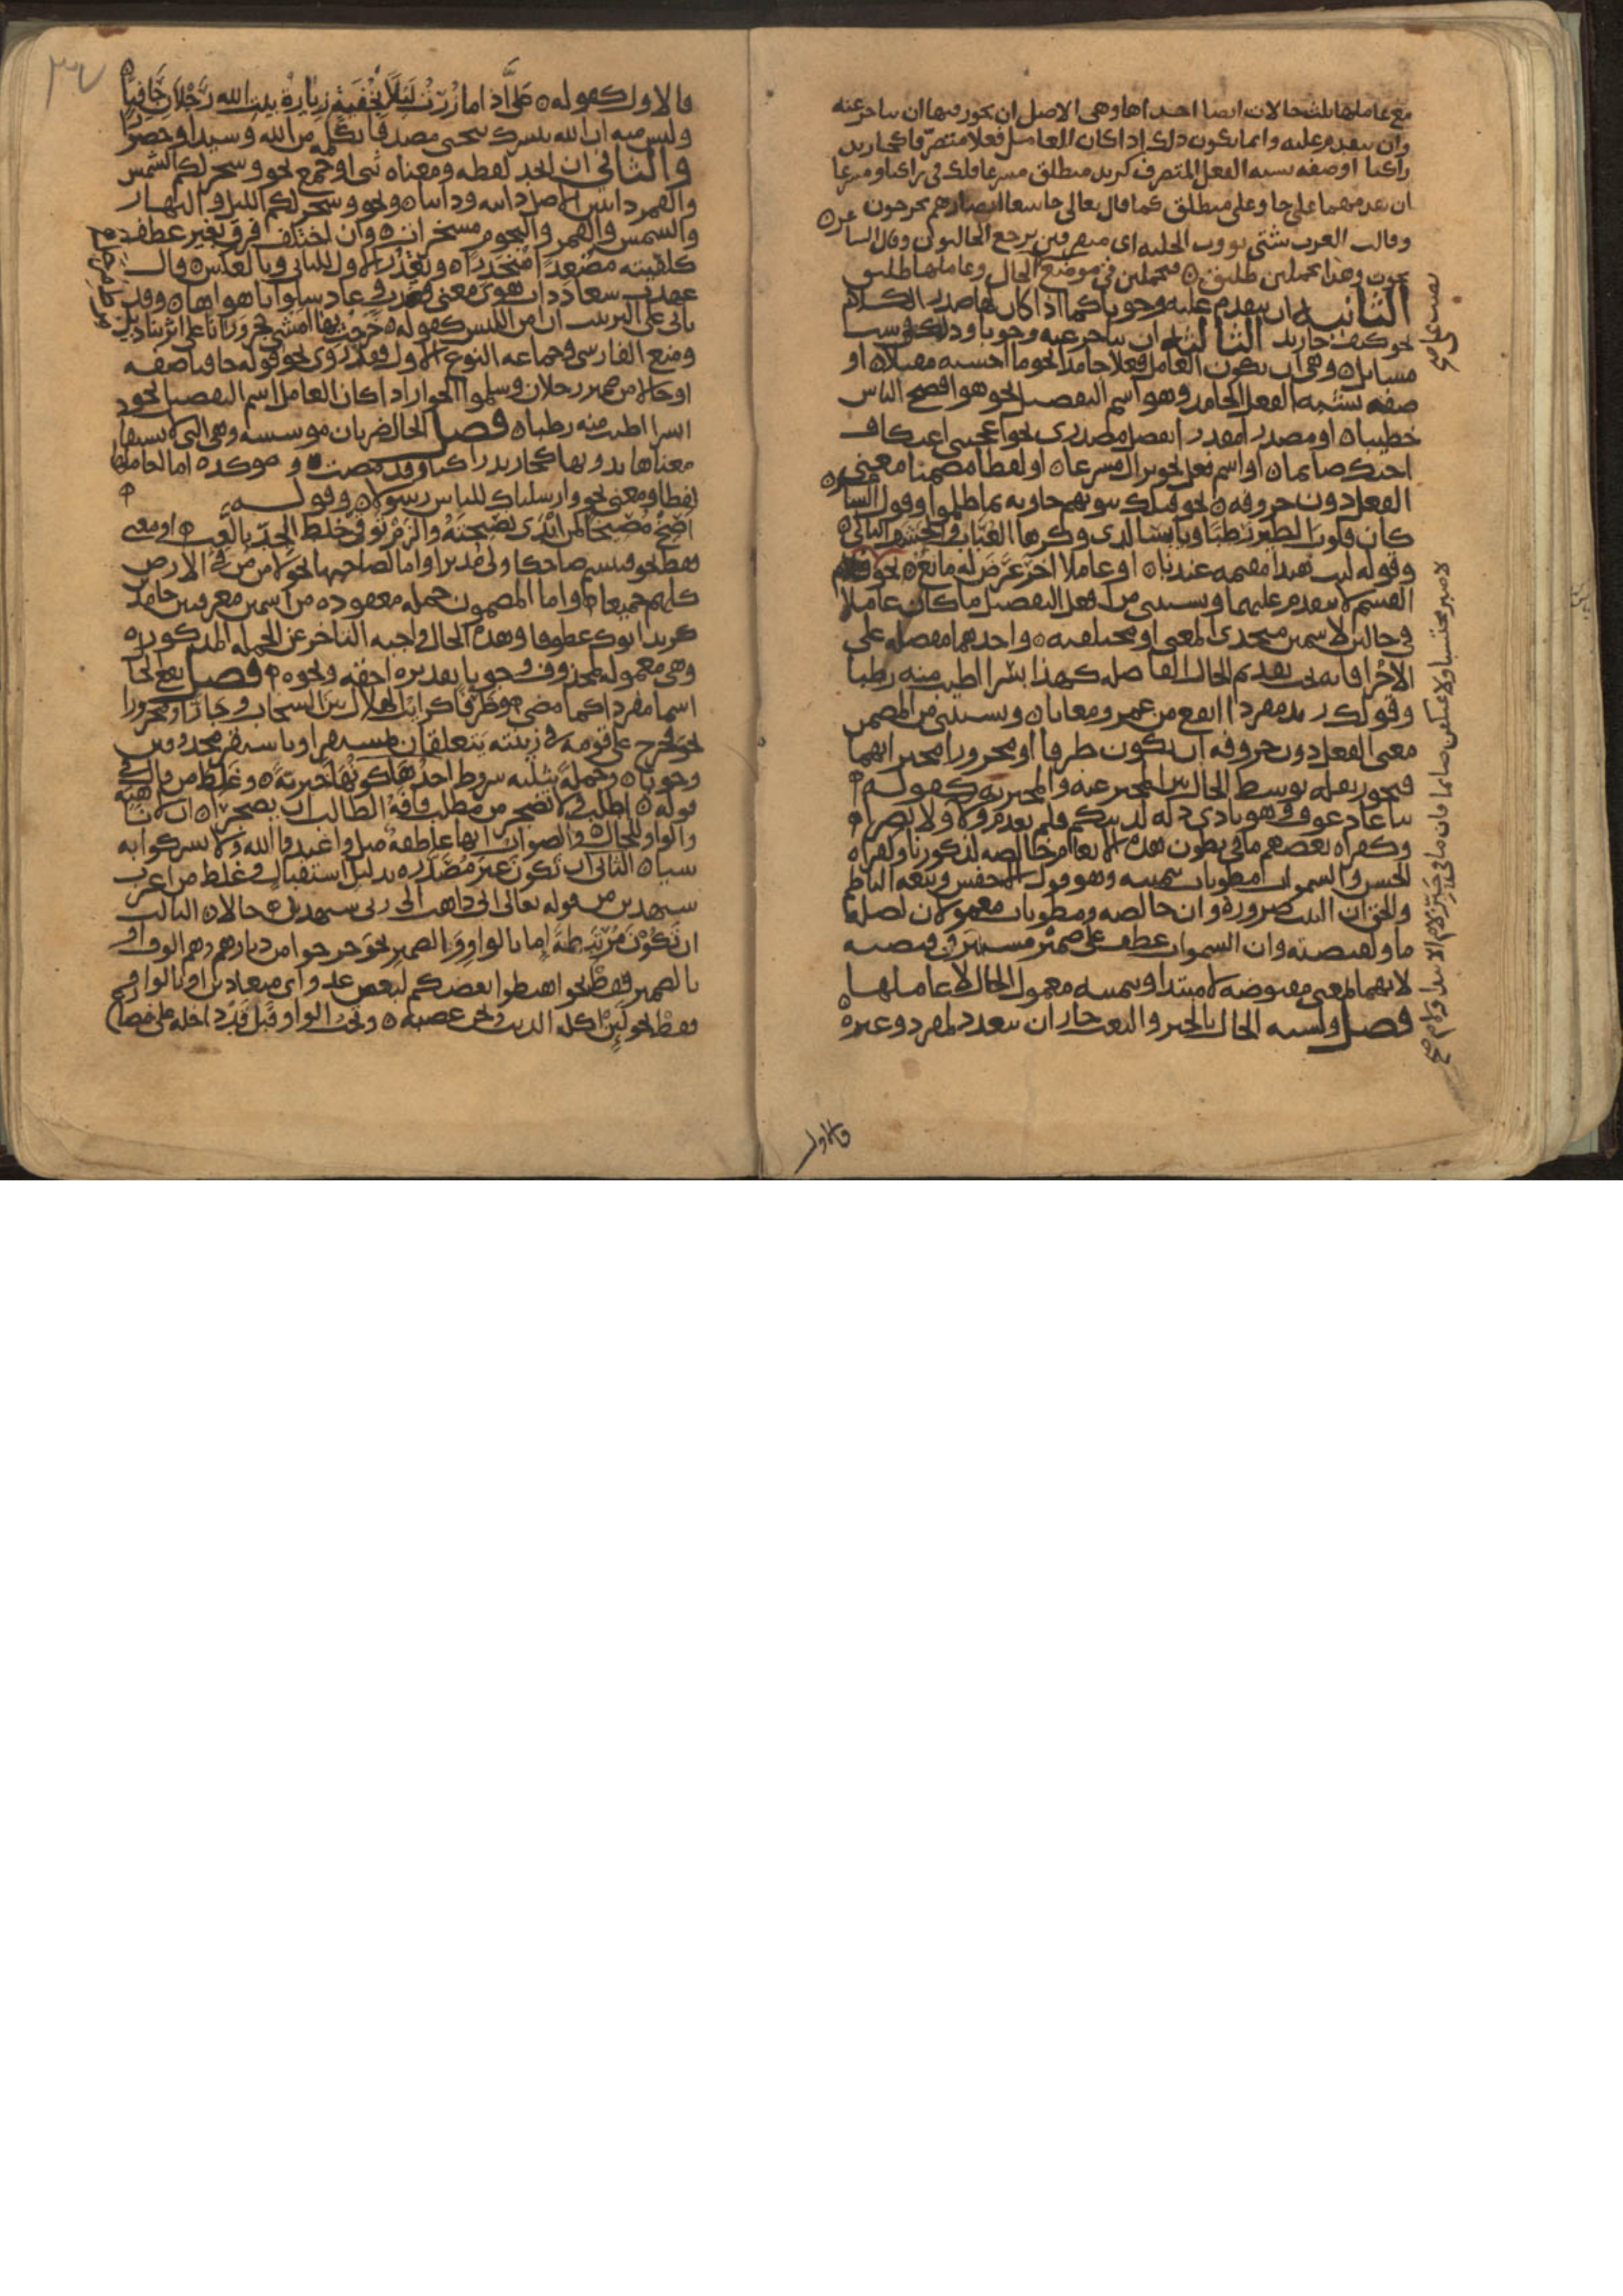 مع عاملها ثلث حالات ايضا احداها وهي الاصل ان يجوز فيها ان يتاخر عنه
وان يتقدم عليه وانما يكون ذلك اذا كان العامل فعلا متصرفا كجا زيد
راكبا او صفه تشبه الفعل المتصرف كزيد منطلق مسرعا فلك في راكبا ومسرعا
ان تقدمهما على جا وعلى منطلق كما قال تعالى خاشعا ابصارهم يخرجون
وقالت العرب شتى تؤوب الحلبه اي متفرقين يرجع الحالبون وقال الشاعر
نجوت وهذا تحملين طليق فتحملين في موضع الحال وعاملها طليق
الثانيه ان يتقدم عليه وجوبا كما اذا كان لها صدر الكلام
نحو كيف جا زيد الثالثه ان يتاخر عنه وجوبا وذلك في ست
مسايل وهي ان يكون العامل فعلا جامدا نحو ما احسنه مقبلا او
صفه تشبه الفعل الجامد وهو اسم التفضيل نحو هو افصح الناس
خطيبا او مصدرا مقدرا بفصل مصدري نحو اعجبني اعتكاف
اخيك صايما او اسم فعل نحو نزال مسرعا او لفظا مضمنا معنى
الفعل دون حروفه نحو فتلك بيوتهم خاويه بما ظلموا وقول الشاعر
كان قلوب الطير رطبا ويابسا لدى وكرها العناب والحشف البالي
وقوله ليت هندا مقيمه عندنا او عاملا اخر عرض له مانع نحو
القسم لا يتقدم عليهما ويستثنى من افعل التفضيل ما كان عاملا
في حالين لاسمين متحدي المعنى او مختلفيه واحدهما مفضل على
الاخر فانه يجب تقديم الحال الفاضله كهذا بسرا اطيب منه رطبا
وقولك زيد مفردا انفع من عمرو معانا ويستثنى من المضمن
معنى الفعل دون حروفه ان يكون ظرفا او مجرورا مخبرا بهما
فيجوز بقله توسط الحال بين المخبر عنه والمخبر به كقوله
بنا عاذ عوف وهو بادي ذله لديكم فلم يعدم ولا ولا نصرا
وكقراه بعضهم ما في بطون هذه الانعام خالصه لذكورنا وكقراه
الحسن والسموات مطويات بيمينه وهو قول الاخفش وتبعه الناظم
والحق ان البيت ضروره وان خالصه ومطويات معمولان لصله
ما ولقبضته وان السموات عطف على ضمير مستتر في قبضته
لانها بمعنى مقبوضه لا مبتدا وبيمينه معمول الحال لا عاملها
فصل ولشبه الحال بالخبر والنعت جاز ان تتعدد لمفرد وغيره
لا صبر محتسبا ولا عتكفن صايما فان ما في حيز لام الابتدا ولام
فالاول
٣٧
فالاول كقوله علي اذا ما زرت ليلى بخفية زيارة بيت الله رجلان حافيا
وليس منه ان الله يبشرك بيحيى مصدقا بكلمه من الله وسيدا وحصورا
والثاني ان اتحد لفظه ومعناه ثني او جمع نحو وسخر لكم الشمس
والقمر دائبين الاصل دائبه ودائبا ونحو وسخر لكم الليل والنهار
والشمس والقمر والنجوم مسخرات وان اختلف فرق بغير عطف
كلقيته مصعدا منحدرا ويقدر الاول للثاني وبالعكس قال
عهدت سعاد ذات هوى معنى فزدت وعاد سلوانا هواها وقد
ياتي على الترتيب ان امن اللبس كقوله خرجت بها امشي تجر وراءنا على اثرينا ذيل
ومنع الفارسي وجماعه النوع الاول فقدروا نحو قوله حافيا صفه
او حالا من ضمير رجلان وسلموا الجواز اذا كان العامل اسم التفضيل نحو
بسرا اطيب منه رطبا فصل الحال ضربان موسسه وهي التي لا يستفاد
معناها بدونها كجا زيد راكبا وقد مضت وموكده اما لعاملها
لفظا ومعنى نحو وارسلناك للناس رسولا وقوله
اصخ مصيخا لمن ابدى نصيحته والزم توقي خلط الجد باللعب او معنى
فقط نحو فتبسم ضاحكا ولى مدبرا واما لصاحبها نحو لامن من في الارض
كلهم جميعا واما لمضمون جمله معقوده من اسمين معرفتين جامدين
كزيد ابوك عطوفا وهذه الحال واجبه التاخر عن الجمله المذكوره
وهي معموله لمحذوف وجوبا تقديره احقه ونحوه فصل تقع الحال
اسما مفردا كما مضى وظرفا كرايت الهلال بين السحاب وجارا ومجرورا
نحو فخرج على قومه في زينته يتعلقان بمستقر او باستقر محذوفين
وجوبا وجملة بثلثه شروط احدها كونها خبرية وغلط من قال في
قوله اطلب ولا تضجر من مطلب فافة الطالب ان يضجرا ان لا ناهيه
والواو للحال والصواب انها عاطفه مثل واعبدوا الله ولا تشركوا به
شيا الثاني ان تكون غير مصدره بدليل استقبال وغلط من اعرب
سيهدين من قوله تعالى اني ذاهب الى ربي سيهدين حالا الثالث
ان تكون مرتبطة اما بالواو والضمير نحو خرجوا من ديارهم وهم الوف او
بالضمير فقط نحو اهبطوا بعضكم لبعض عدو اي متعادين او بالواو
فقط نحو لئن اكله الذيب ونحن عصبه وتجب الواو قبل قد داخلة على مضارع